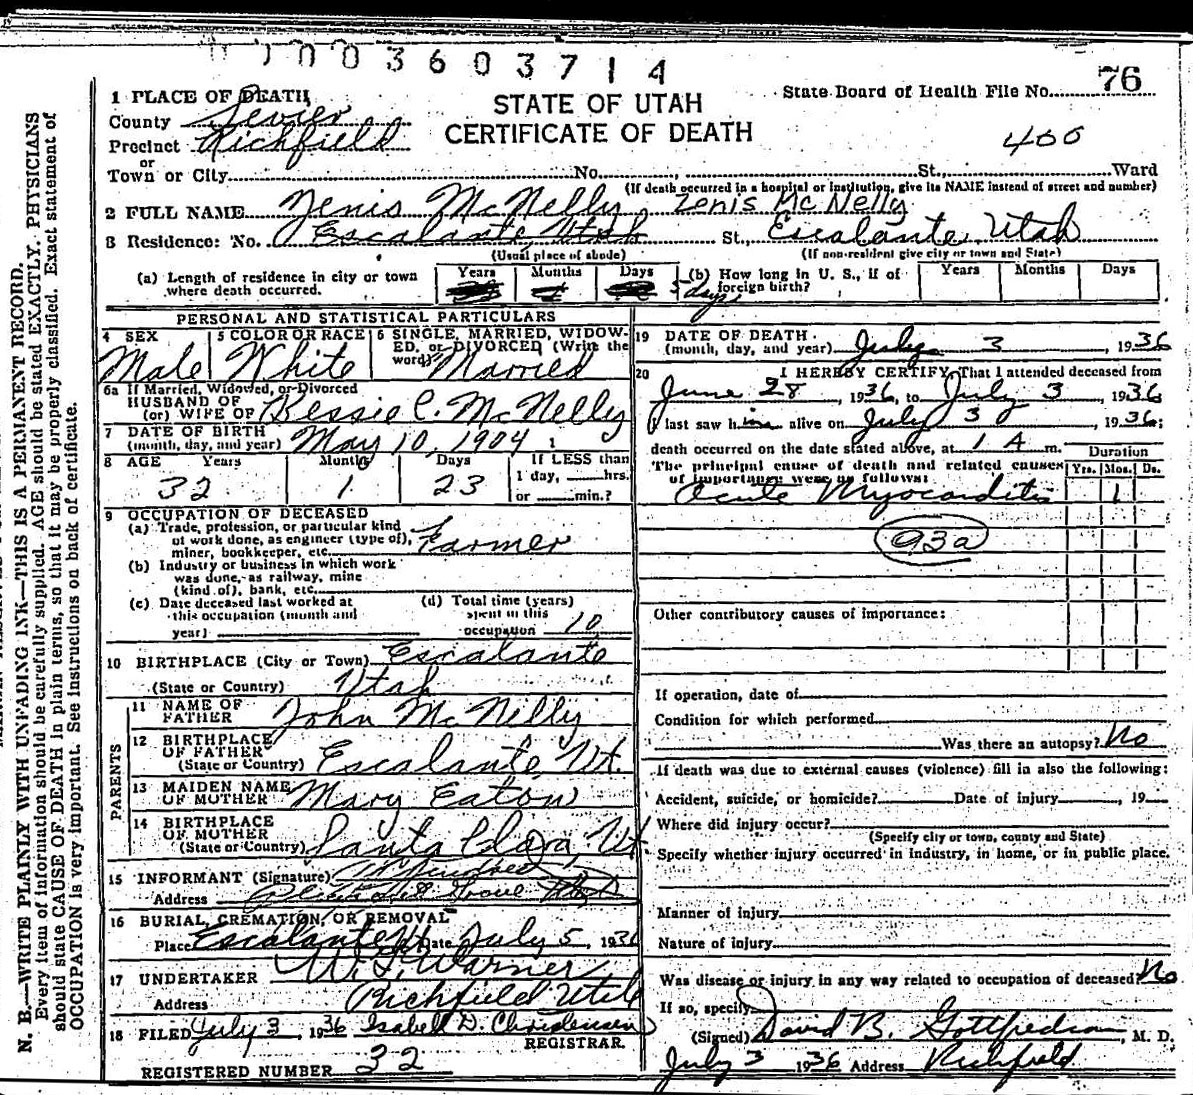 1003603714
76
1 PLACE OF DEATH
STATE OF UTAH
State Board of Health File No.
County Sevier
CERTIFICATE OF DEATH
400
Precinct Richfield
or
Town or City No. St., Ward
(If death occurred in a hospital or institution, give its NAME instead of street and number)
2 FULL NAME Zenis McNelly Zenis McNelly
3 Residence: No. Escalante Utah St., Escalante, Utah
(Usual place of abode) (If non-resident give city or town and State)
(a) Length of residence in city or town where death occurred. Years Months Days 5 days
(b) How long in U. S., if of foreign birth? Years Months Days
PERSONAL AND STATISTICAL PARTICULARS
4 SEX 5 COLOR OR RACE 6 SINGLE, MARRIED, WIDOW-
ED, or DIVORCED (Write the
word)
Male White Married
6a If Married, Widowed, or Divorced
HUSBAND OF
(or) WIFE OF Bessie C. McNelly
7 DATE OF BIRTH
(month, day, and year) May 10, 1904
8 AGE Years Months Days If LESS than
1 day, hrs.
or min.?
32 1 23
9 OCCUPATION OF DECEASED
(a) Trade, profession, or particular kind
of work done, as engineer (type of),
miner, bookkeeper, etc. Farmer
(b) Industry or business in which work
was done, as railway, mine
(kind of), bank, etc.
(c) Date deceased last worked at
this occupation (month and
year)
(d) Total time (years)
spent in this
occupation 10
10 BIRTHPLACE (City or Town) Escalante
(State or Country) Utah
PARENTS
11 NAME OF
FATHER John McNelly
12 BIRTHPLACE
OF FATHER
(State or Country) Escalante, Ut.
13 MAIDEN NAME
OF MOTHER Mary Eaton
14 BIRTHPLACE
OF MOTHER
(State or Country) Santa Clara, Ut
15 INFORMANT (Signature)
Address Grove
16 BURIAL, CREMATION, OR REMOVAL
Place Escalante Date July 5, 1936
17 UNDERTAKER W. S. Warner
Address Richfield Utah
18 FILED July 3, 1936 Isabell D. Christensen
REGISTRAR.
REGISTERED NUMBER 32
19 DATE OF DEATH
(month, day, and year) July 3, 1936
20 I HEREBY CERTIFY, That I attended deceased from
June 28, 1936, to July 3, 1936
I last saw him alive on July 3, 1936;
death occurred on the date stated above, at 1 A m.
The principal cause of death and related causes
of importance were as follows:
Duration
Yrs. Mos. Ds.
Acute Myocarditis 1
93a
Other contributory causes of importance:
If operation, date of
Condition for which performed
Was there an autopsy? No
If death was due to external causes (violence) fill in also the following:
Accident, suicide, or homicide? Date of injury , 19
Where did injury occur?
(Specify city or town, county and State)
Specify whether injury occurred in industry, in home, or in public place.
Manner of injury
Nature of injury
Was disease or injury in any way related to occupation of deceased? No
If so, specify
(Signed) David B. Gottfredson, M. D.
July 3 1936 Address Richfield
N. B.—WRITE PLAINLY WITH UNFADING INK—THIS IS A PERMANENT RECORD.
Every item of information should be carefully supplied. AGE should be stated EXACTLY. PHYSICIANS
should state CAUSE OF DEATH in plain terms, so that it may be properly classified. Exact statement of
OCCUPATION is very important. See instructions on back of certificate.